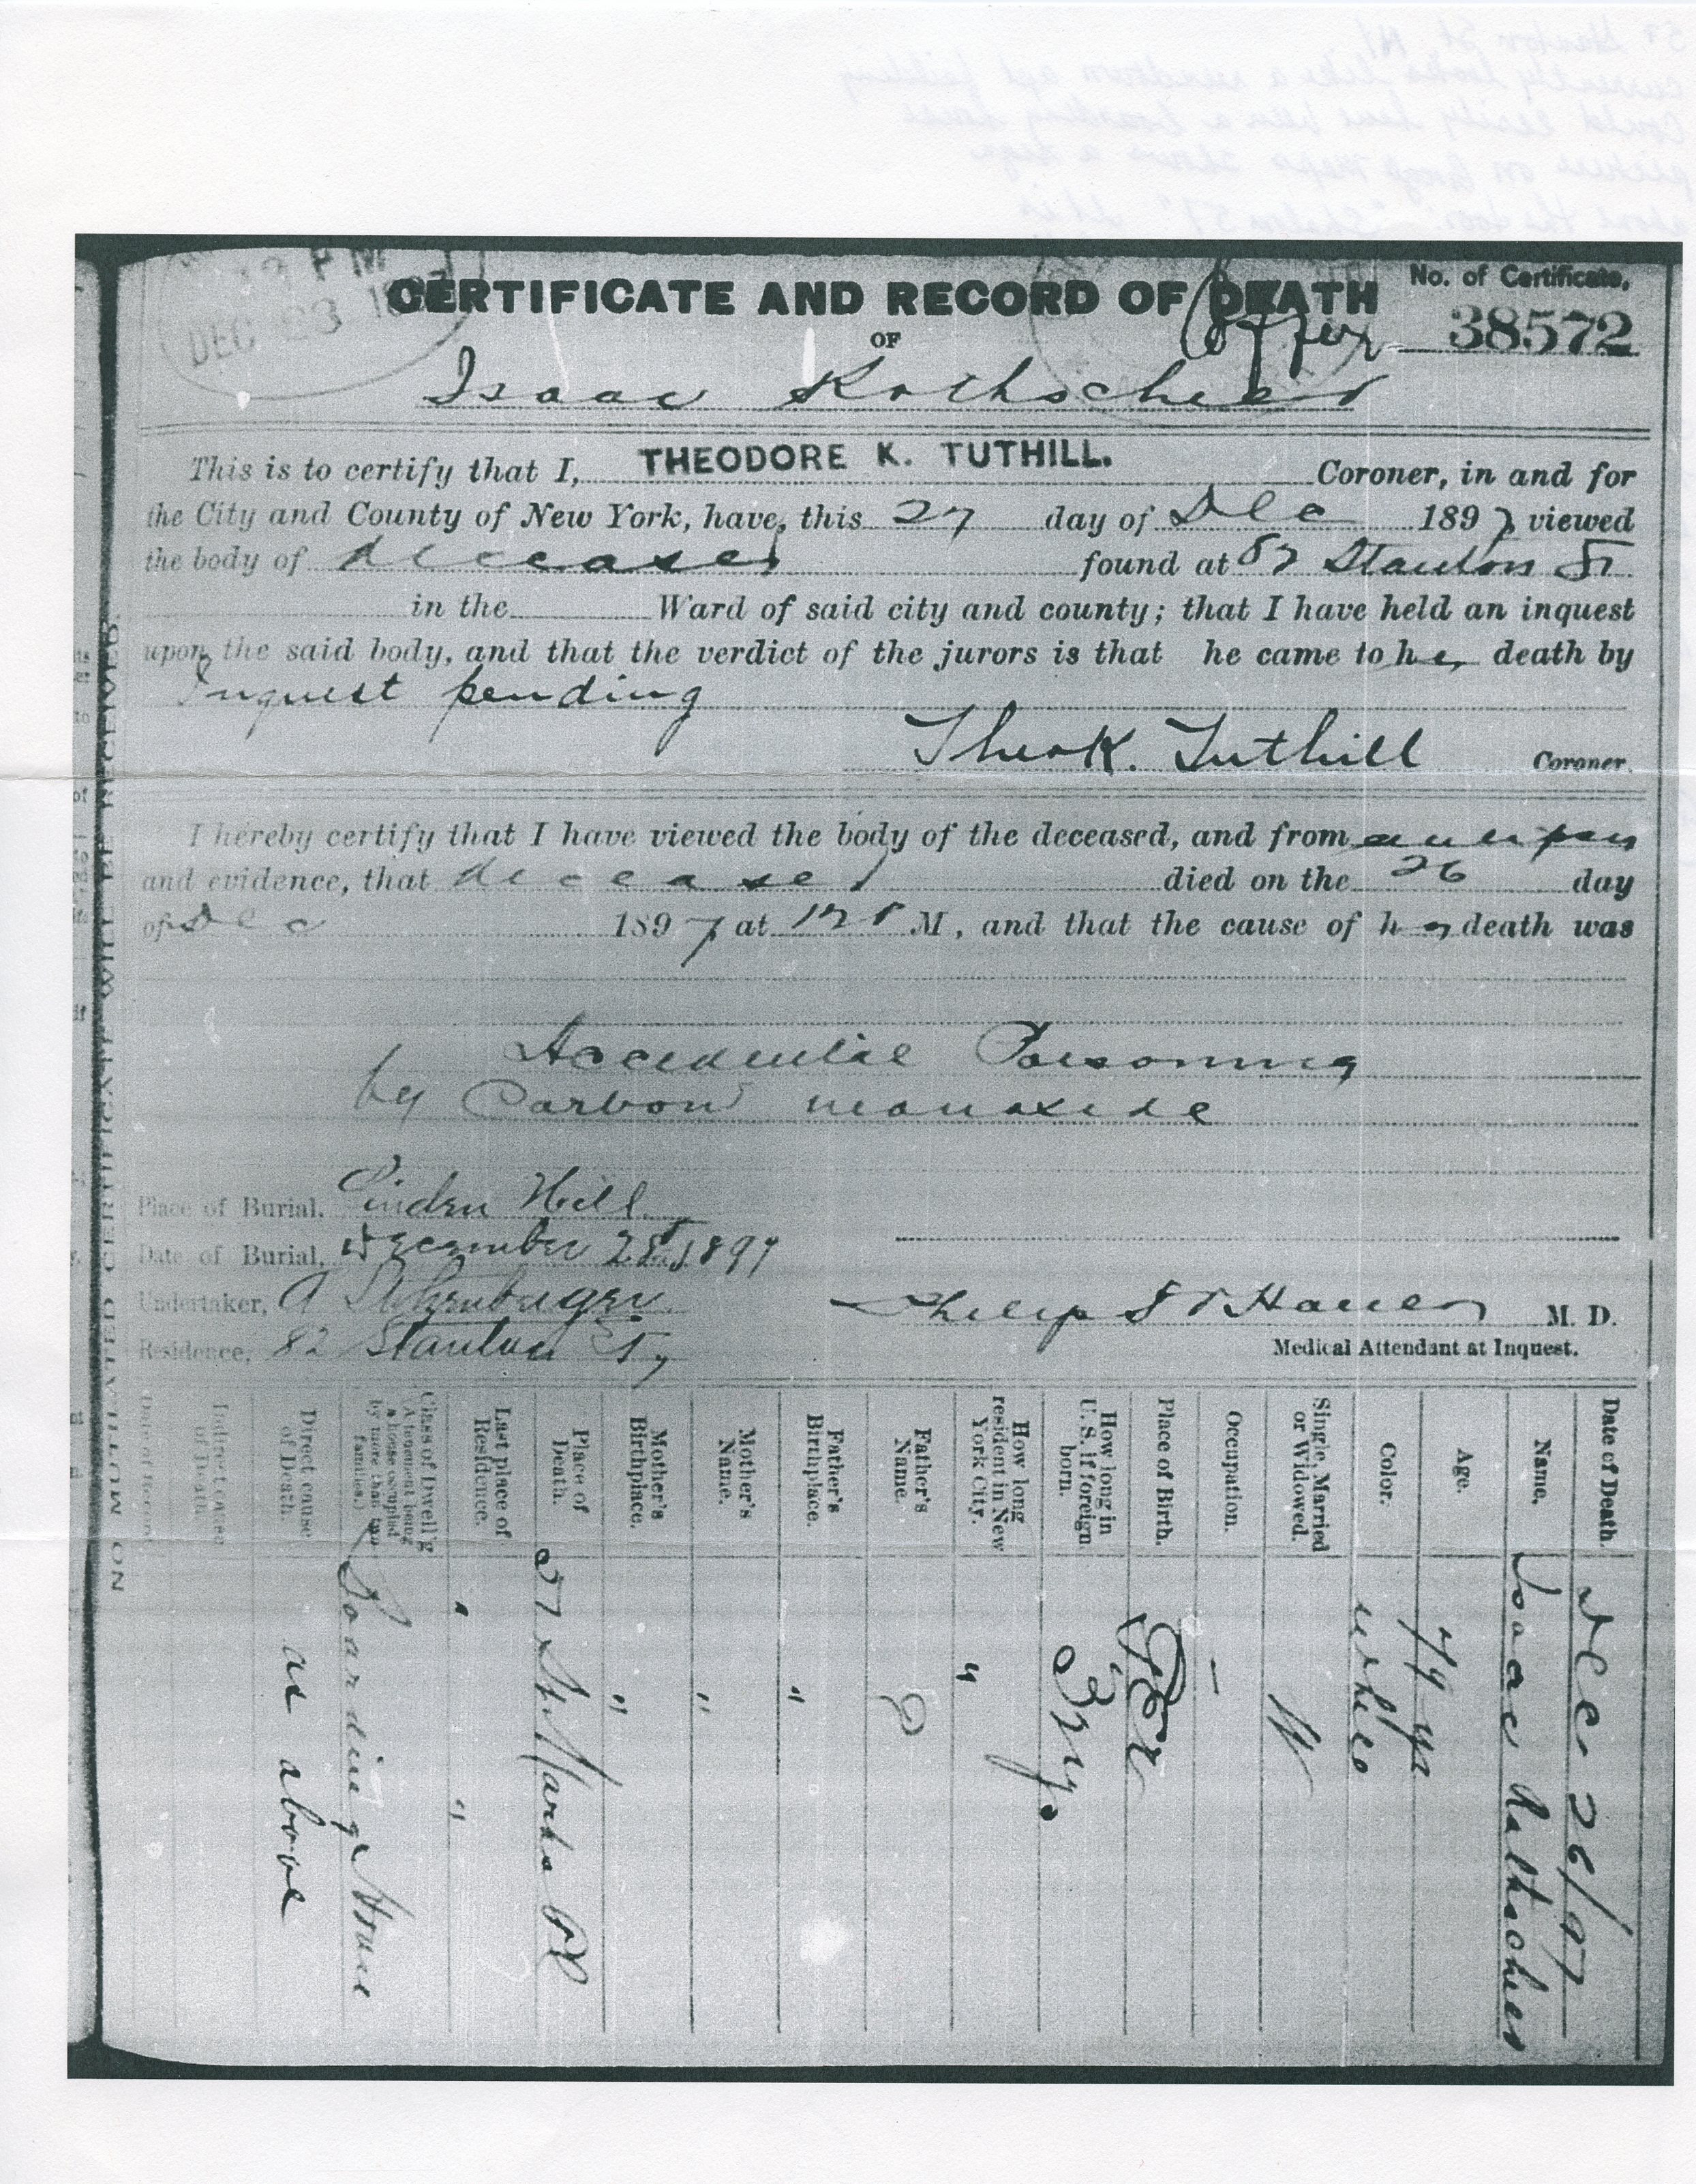 CERTIFICATE AND RECORD OF DEATH
No. of Certificate,
38572
OF
PM
DEC 23
Isaac Rothschild
This is to certify that I, THEODORE K. TUTHILL. Coroner, in and for
the City and County of New York, have, this 27 day of Dec 1897 viewed
the body of deceased found at 57 Stanton St
in the Ward of said city and county; that I have held an inquest
upon the said body, and that the verdict of the jurors is that he came to his death by
Inquest pending
Theo K. Tuthill Coroner.
I hereby certify that I have viewed the body of the deceased, and from
and evidence, that deceased died on the 26 day
of Dec 1897 at 12 M, and that the cause of his death was
Accidental Poisoning
by Carbon monoxide
Place of Burial, Linden Hill
Date of Burial, December 28th 1897
Undertaker, A
Residence, 82 Stanton St,
Philip M. D.
Medical Attendant at Inquest.
Date of Death. Dec 26/97
Name. Isaac Rothschild
Age. 79 yrs
Color. white
Single, Married or Widowed. W
Occupation. –
Place of Birth. Ger
How long in U. S. if foreign born. 3 y.
How long resident in New York City. "
Father's Name. ?
Father's Birthplace. "
Mother's Name. "
Mother's Birthplace. "
Place of Death. 27 St Marks Pl
Last place of Residence. " "
Class of Dwell'g (A tenement being a house occupied by more than two families.) Boarding House
Direct cause of Death. as above
Indirect cause of Death.
Date of Record
NO MUTILATED CERTIFICATE WILL BE RECEIVED.